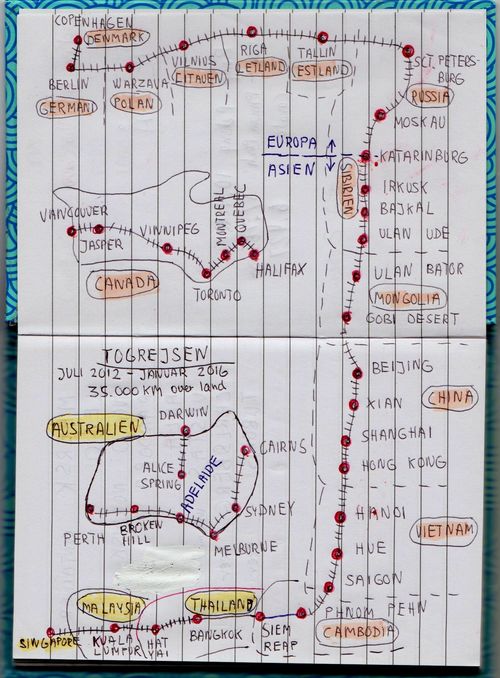 COPENHAGEN
DENMARK
BERLIN
GERMANI
WARZAVA
POLAN
VILNIUS
LITAUEN
RIGA
LETLAND
TALLIN
ESTLAND
SCT. PETERS-
BURG
RUSSIA
MOSKAU
EUROPA
ASIEN
KATARINBURG
SIBIRIEN
IRKUSK
BAJKAL
ULAN UDE
ULAN BATOR
MONGOLIA
GOBI DESERT
VANCOUVER
JASPER
VINNIPEG
MONTREAL
QUEBEC
HALIFAX
TORONTO
CANADA
TOGREJSEN
JULI 2012 - JANUAR 2016
35.000 KM over land
AUSTRALIEN
DARWIN
ALICE
SPRING
ADELAIDE
CAIRNS
SYDNEY
PERTH
BROKEN
HILL
MELBURNE
BEIJING
XIAN
CHINA
SHANGHAI
HONG KONG
HANOI
VIETNAM
HUE
SAIGON
PHNOM PEHN
CAMBODIA
MALAYSIA
THAILAND
SINGAPORE
KUALA
LUMPUR
HAT
YAI
BANGKOK
SIEM
REAP